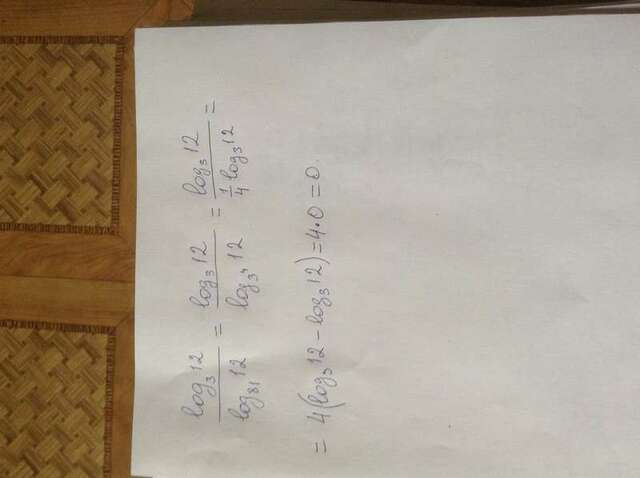 log₃12 / log₈₁12 = log₃12 / log₃⁴12 = log₃12 / ¼ log₃12 =
= 4(log₃12 - log₃12) = 4·0 = 0.